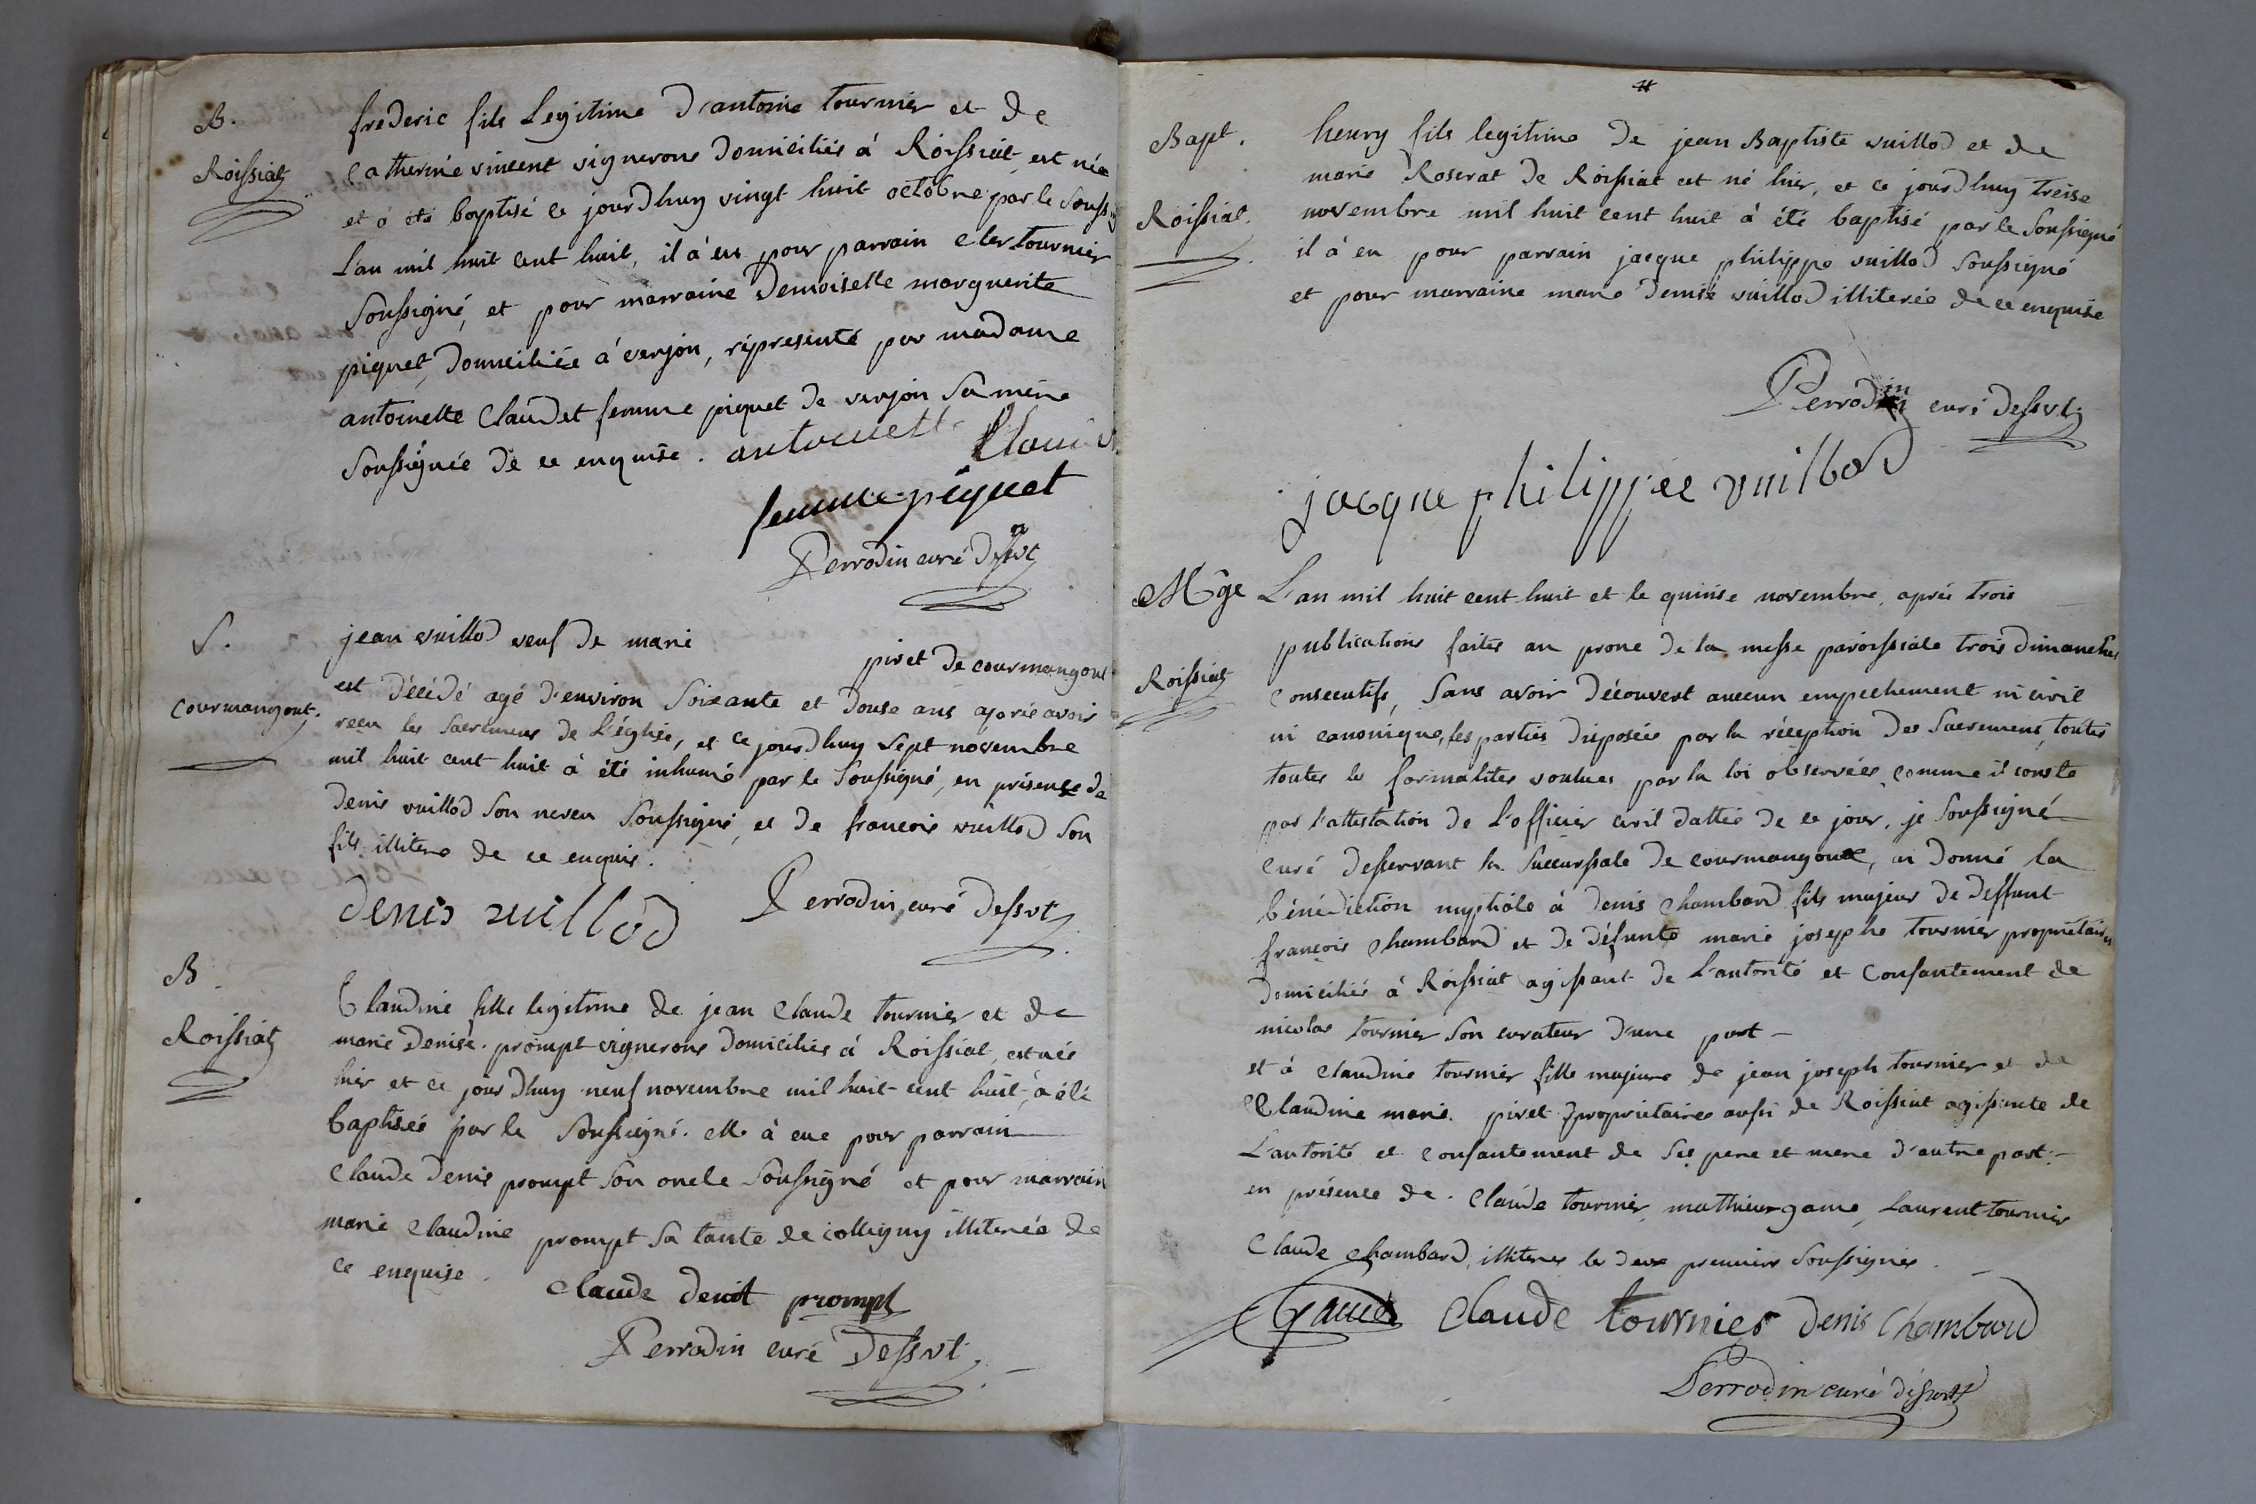 B.
Roissiat
frederic fils Legitime d'antoine tournier et de
Catherine vincent vignerons domiciliés à Roissiat, est née
et a été baptisé ce jourdhuy vingt huit octobre par le Soussigné
L'an mil huit cent huit, il à eu pour parrain cler tournier
Soussigné, et pour marraine Demoiselle marguerite
piquet, domiciliée à verjon, réprésenté par madame
antoinette Claudet femme piquet de verjon Sa mère
Soussignée de ce enquise. antoinette Claudet
femme piquet
Perrodin curé dessvt
S.
Courmangout.
jean vuillod veuf de marie piret de courmangout
est décédé agé d'environ Soixante et douse ans après avoir
recu les Sacremens de L'église, et ce jourdhuy Sept novembre
mil huit cent huit à été inhumé par le Soussigné, en présence de
denis vuillod Son neveu Soussigné, et de francois vuillod Son
fils illitere de ce enquis.
denis vuillod Perrodin curé dessvt
B.
Roissiat
Claudine fille legitime de jean Claude tournier et de
marie Denise prompt vignerons domiciliés à Roissiat, est née
hier et ce jourdhuy neuf novembre mil huit cent huit, à été
baptisée par le Soussigné. elle à eue pour parrain
Claude denis prompt Son oncle Soussigné et pour marrain
marie Claudine prompt Sa tante de colligny illiterée de
ce enquise.
Claude denit prompt
Perrodin curé Dessvt
Bapt.
Roissiat.
henry fils legitime de jean Baptiste vuillod et de
marie Roserat de Roissiat est né hier, et ce jourdhuy treise
novembre mil huit cent huit à été baptisé par le Soussigné
il à eu pour parrain jacque philippe vuillod Soussigné
et pour marraine marie denise vuillod illiterée de ce enquise
Perrodin curé dessvt
jacque philippe vuillod
Mge
Roissiat
L'an mil huit cent huit et le quinse novembre, après trois
publications faites au prone de la messe paroissiale trois dimanches
Consecutifs, Sans avoir découvert aucun empechement ni civil
ni canonique, les parties disposées par la réception des Sacremens, toutes
toutes les formalites voulues par la loi observées, comme il conste
par l'attestation de L'officier civil dattée de ce jour, je Soussigné
Curé desservant la Succursale de courmangoux, ai donné la
bénédiction nuptiale à denis chambard fils majeur de deffunt
françois chambard et de défunte marie josephe tournier propriétaires
domiciliés à Roissiat agissant de L'autorité et Consantement de
nicolas tournier Son curateur d'une part -
et à claudine tournier fille majeure de jean joseph tournier et de
Claudine marie piret propriétaires aussi de Roissiat agissante de
L'autorité et consantement de Ses pere et mere d'autre part -
en présence de Claude tournier, mathieu game, Laurent tournier
Claude chambard, illiteres les deux premiers Soussignés.
Game Claude tournier denis Chambard
Perrodin curé dessvt